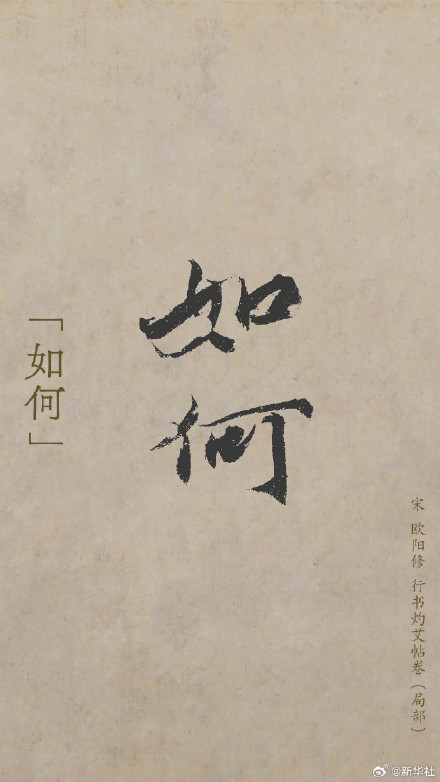 如何
「如何」
宋 欧阳修 行书灼艾帖卷（局部）
@新华社